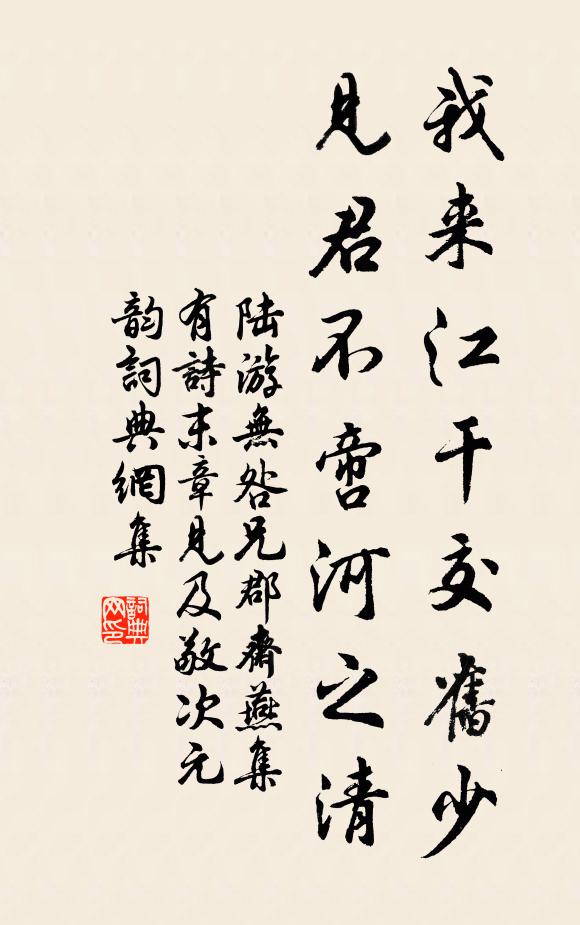 我来江干交舊少
見君不啻河之清
陆游無咎兄郡齋燕集
有詩末章見及敬次元
韵詞典網集
詞典网印